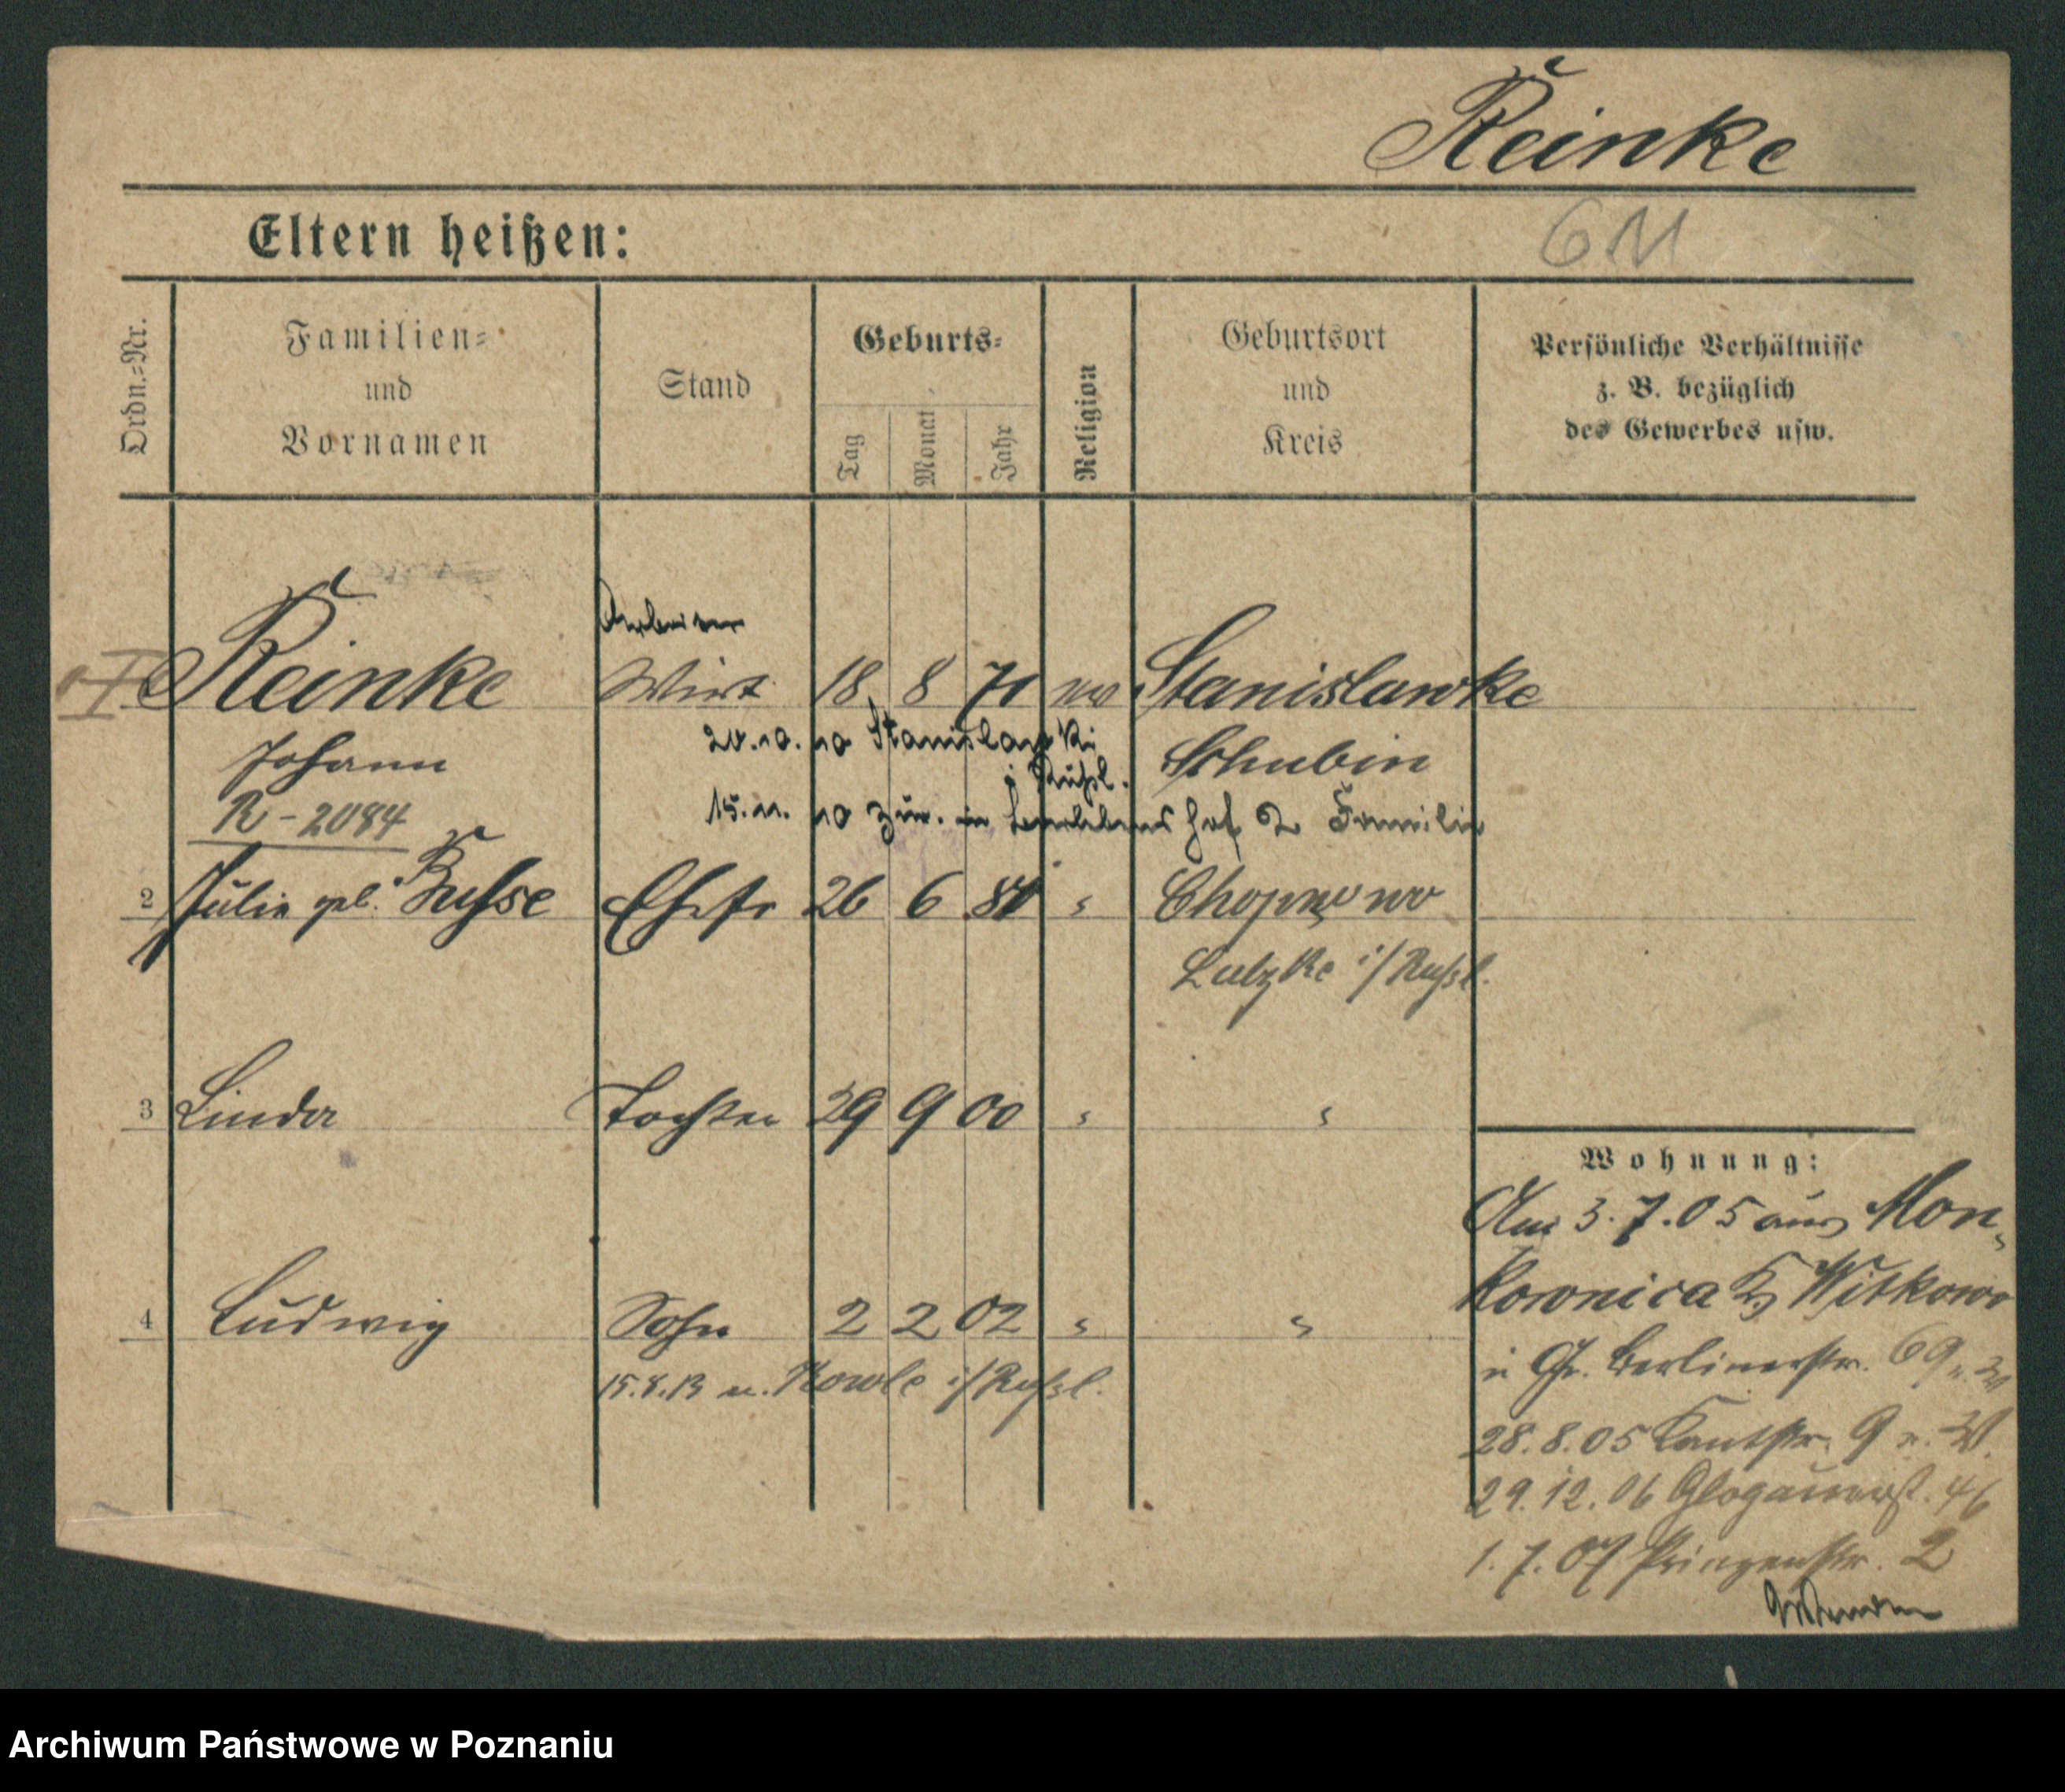 Reinke
Eltern heißen:
611
Ordn.-Nr.
Familien- und Vornamen
Stand
Geburts-
Tag
Monat
Jahr
Religion
Geburtsort und Kreis
Persönliche Verhältnisse z. B. bezüglich des Gewerbes usw.
Arbeiter
Reinke Wirt 18 8 71 ev Stanislawke
Johann Schubin
20.10. 10 Stanislawki
i Rußl.
R - 2084
15.11. 10 zur. in hof 2 Familie
2 Julie geb. Busse Ehefr 26 6 Chopnewo
Lutzke i/Rußl.
3 Linda Tochter 29 9 00 " "
4 Ludwig Sohn 2 2 02 " "
15.8.13 n. Kowle i/Rußl.
Wohnung:
Am 3.7.05 aus Mon-
kownica K Witkowo
n Gr. Berlinerstr. 69
28.8.05 Kantstr. 9 n. W.
29.12.06 Glogauerst. 46
1.7.07 Prinzenstr. 2
Archiwum Państwowe w Poznaniu